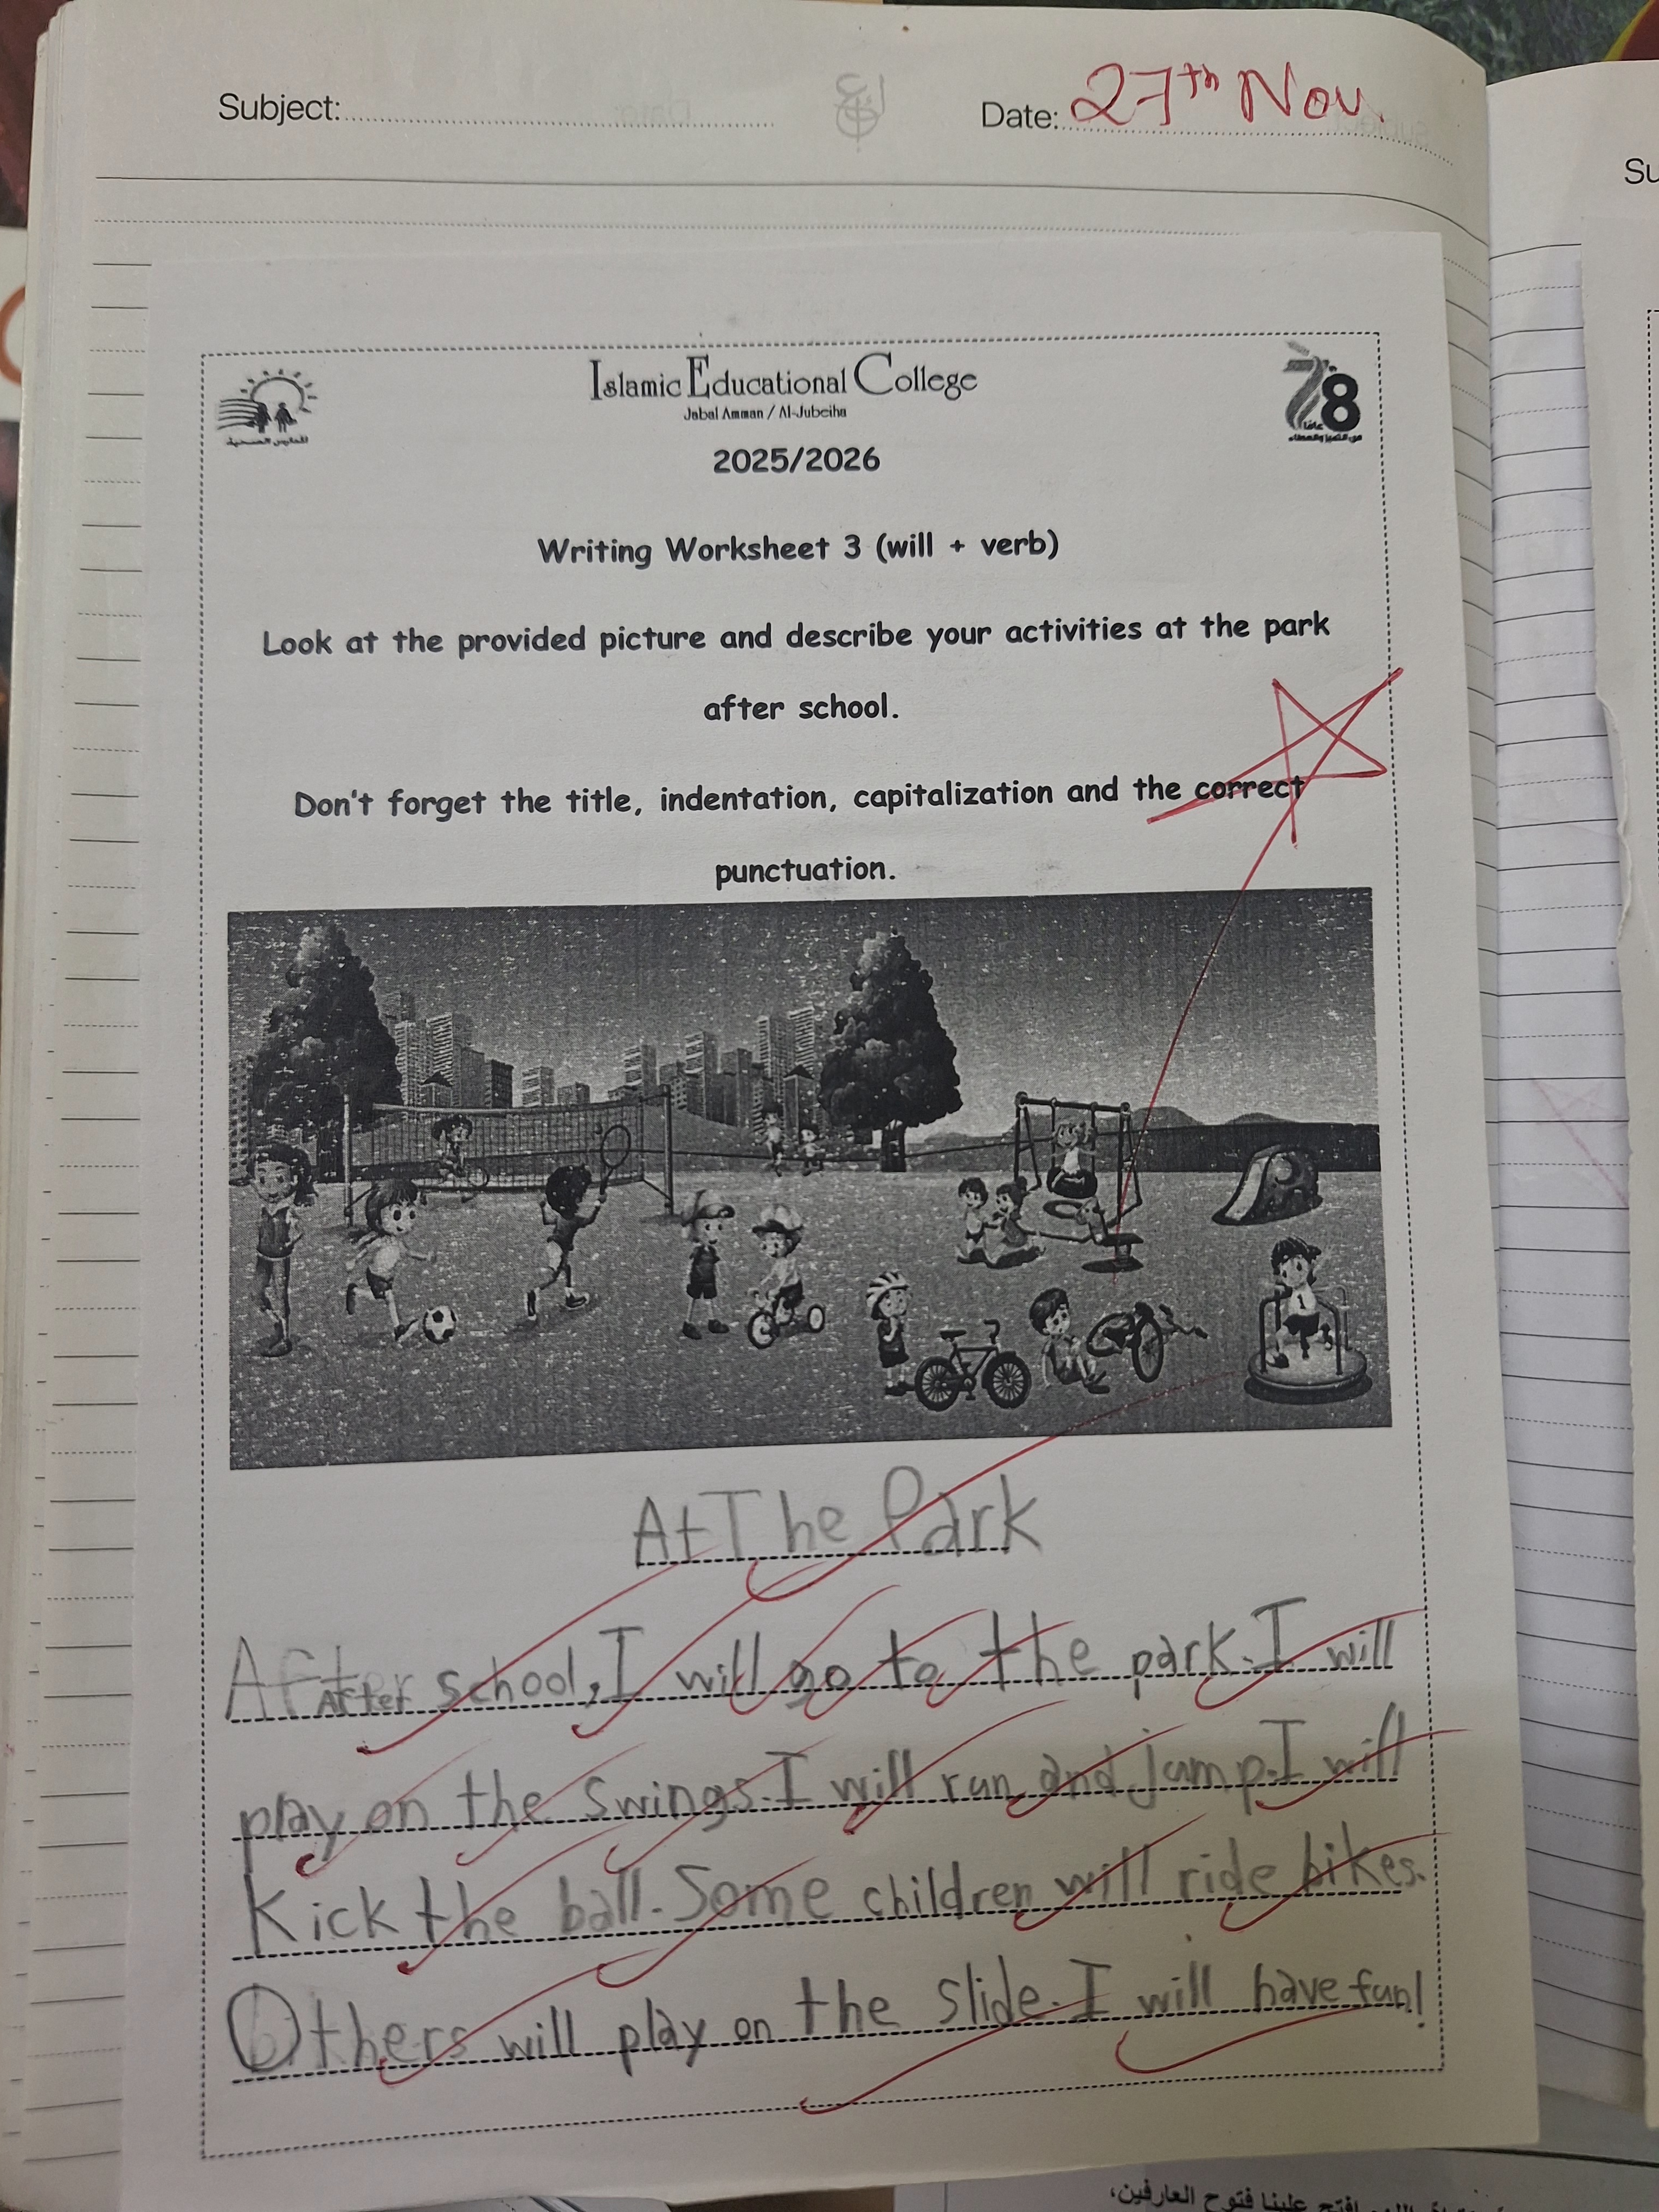 Subject:
Date: 27th Nov.
Su
Islamic Educational College
Jabal Amman / Al-Jubeiha
78
2025/2026
Writing Worksheet 3 (will + verb)
Look at the provided picture and describe your activities at the park
after school.
Don't forget the title, indentation, capitalization and the correct
punctuation.
At The Park
After school, I will go to the park. I will
play on the swings. I will run and jump. I will
Kick the ball. Some children will ride bikes.
Others will play on the slide. I will have fun!
افتح علينا فتوح العارفين،